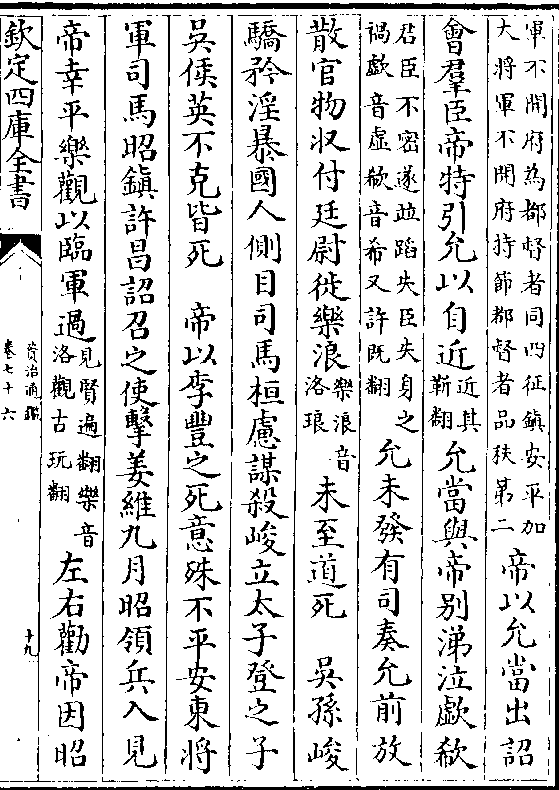 軍不開府為都督者同四征鎮安平加
大將軍不開府持節都督者品秩第二
帝以允當出詔
會羣臣帝特引允以自近
近其
靳翻
允當與帝别涕泣歔欷
君臣不密遂竝蹈失臣失身之
禍歔音虚欷音希又許既翻
允未發有司奏允前放
散官物収付廷尉徙樂浪
樂浪音
洛琅
未至道死　吳孫峻
驕矜淫暴國人側目司馬桓慮謀殺峻立太子登之子
吳侯英不克皆死　帝以李豐之死意殊不平安東將
軍司馬昭鎮許昌詔召之使擊姜維九月昭領兵入見
帝幸平樂觀以臨軍過
見賢遍翻樂音
洛觀古玩翻
左右勸帝因昭
欽定四庫全書
資治通鑑
卷七十六
十九